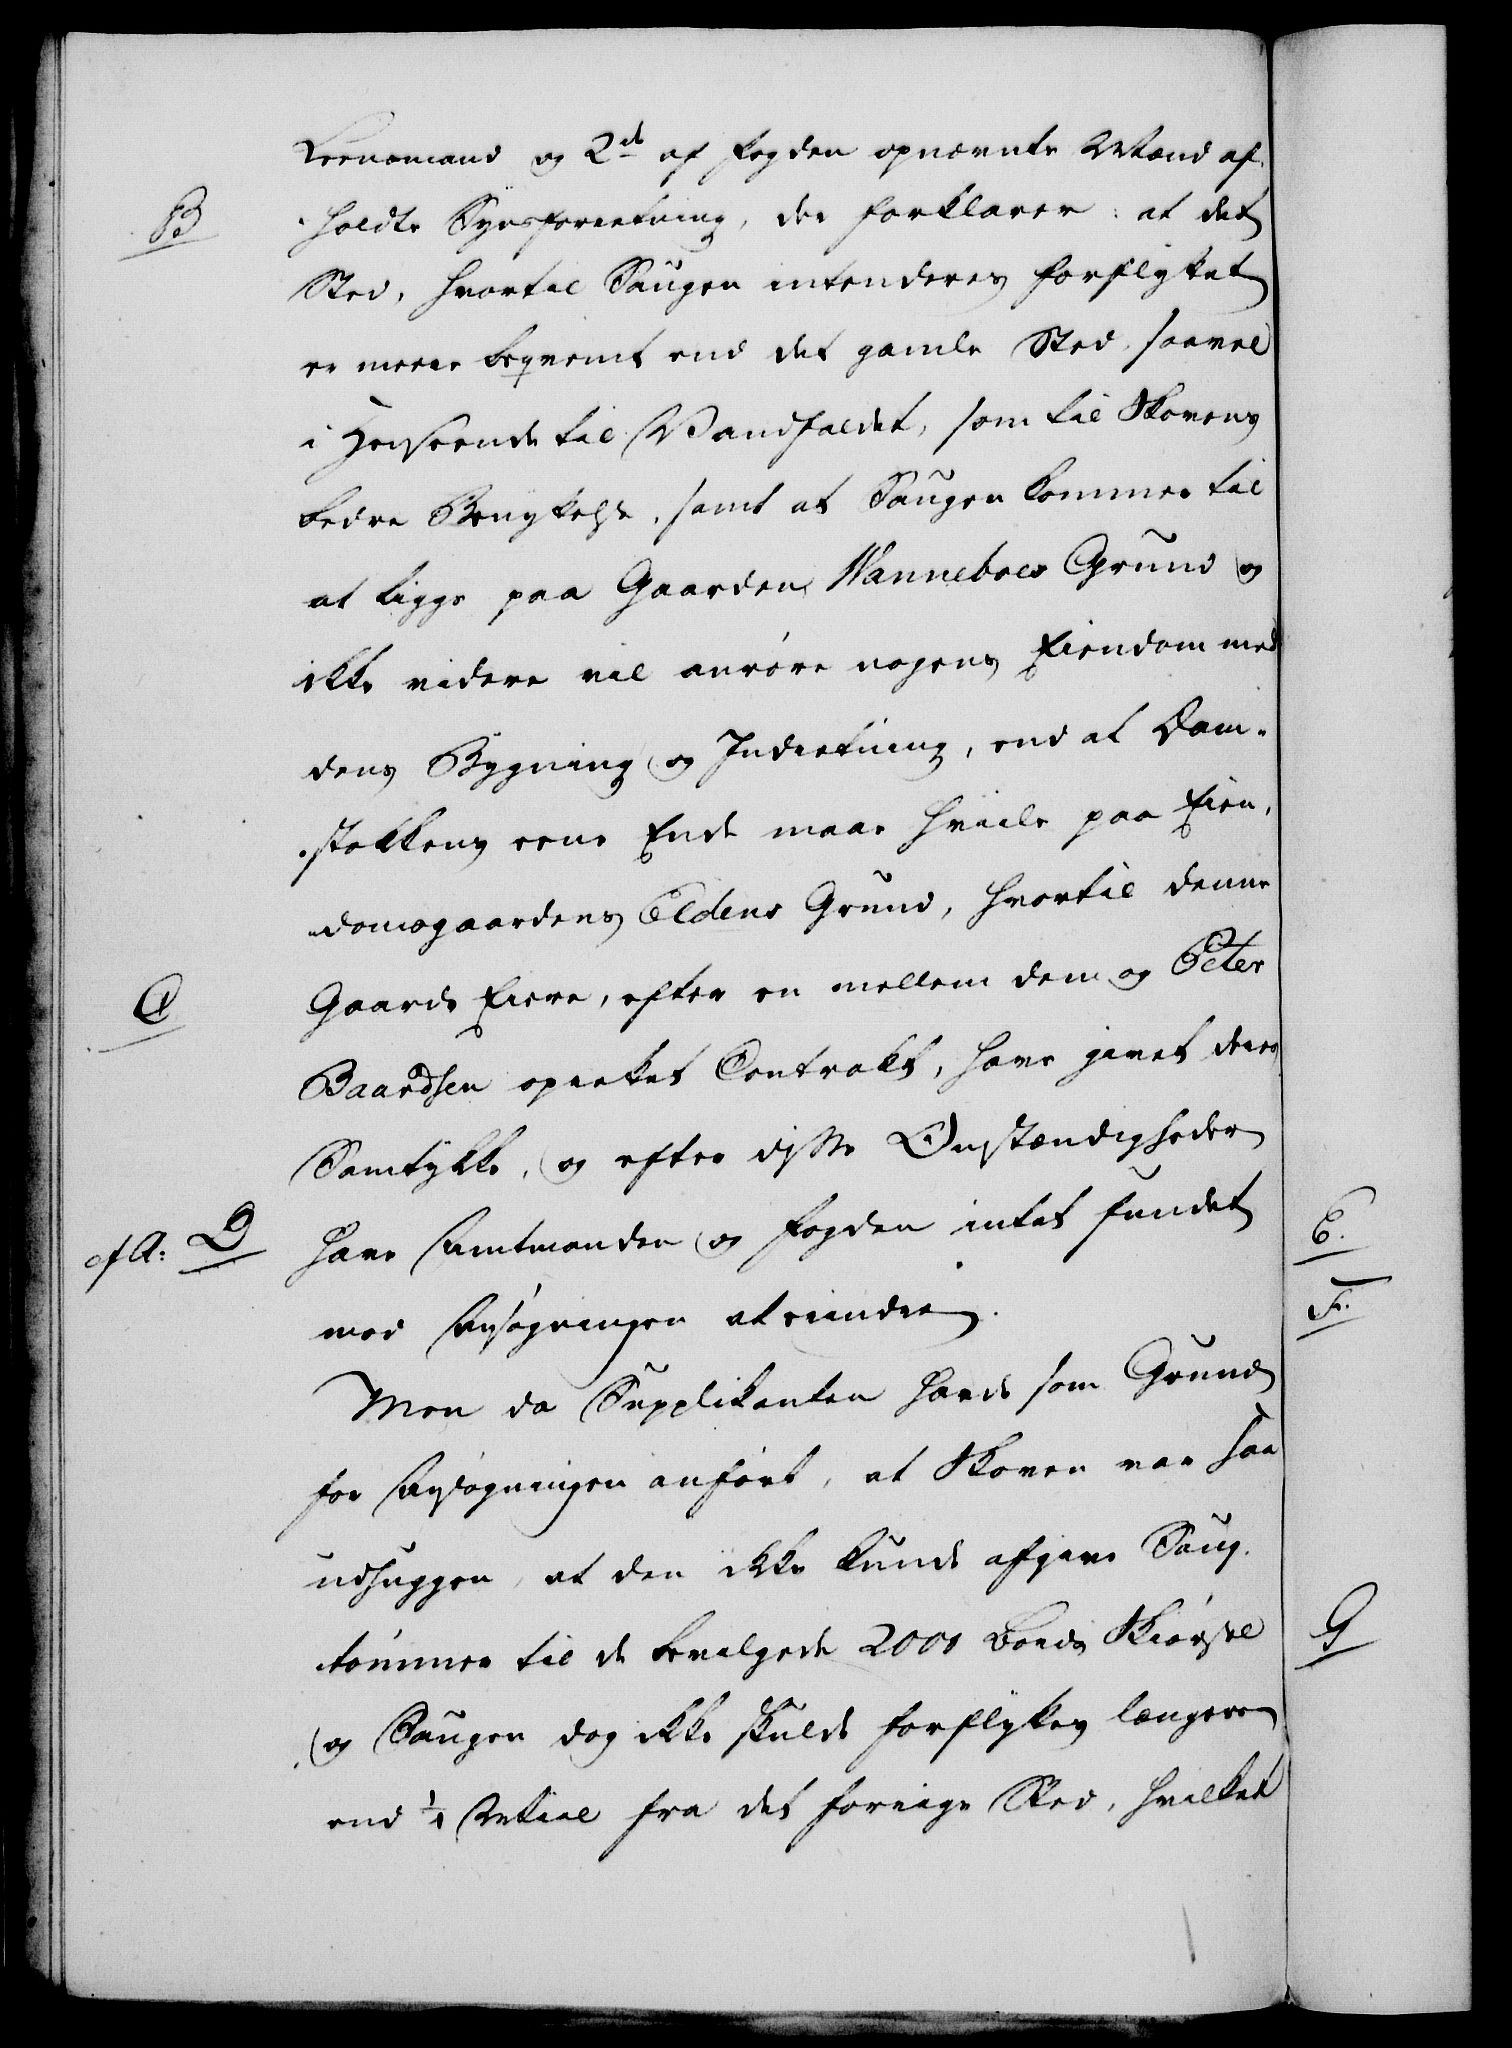 Leensmand og 2de af Fogden opnævnte Mænd af¬
B
holdte Synsforretning, der forklarer: at det
Sted, hvortil Saugen intenderes forflyttet
er meere beqvemt end det gamle Sted, saavel
i Henseende til Vandfaldet, som til Skovens
bedre Benyttelse, samt at Saugen kommer til
at ligge paa Gaarden Wanneboes Grund og
ikke videre vil anröre nogens Eiendom med
dens Bygning og Indretning, end at Dam¬
stokkens eene Ende maae hviile paa Eien¬
domsgaardens Eldens Grund, hvortil denne
C
Gaards Eiere, efter en mellem dem og Peter
Baardsen oprettet Contrakt, have givet deres
Samtykke, og efter disse Omstændigheder
cfr A: D
have Amtmanden og Fogden intet fundet
E.
mod Ansøgningen at erindre.
F.
Men da Supplikanten havde som Grund
for Ansøgningen anført, at Skoven var saa
udhuggen, at den ikke kunde afgive Saug¬
tømmer til de bevilgede 2000 Bords Skiørsel
G
og Saugen dog ikke skulde forflyttes længere
end 1/4 Miil fra det forrige Sted, hvilket